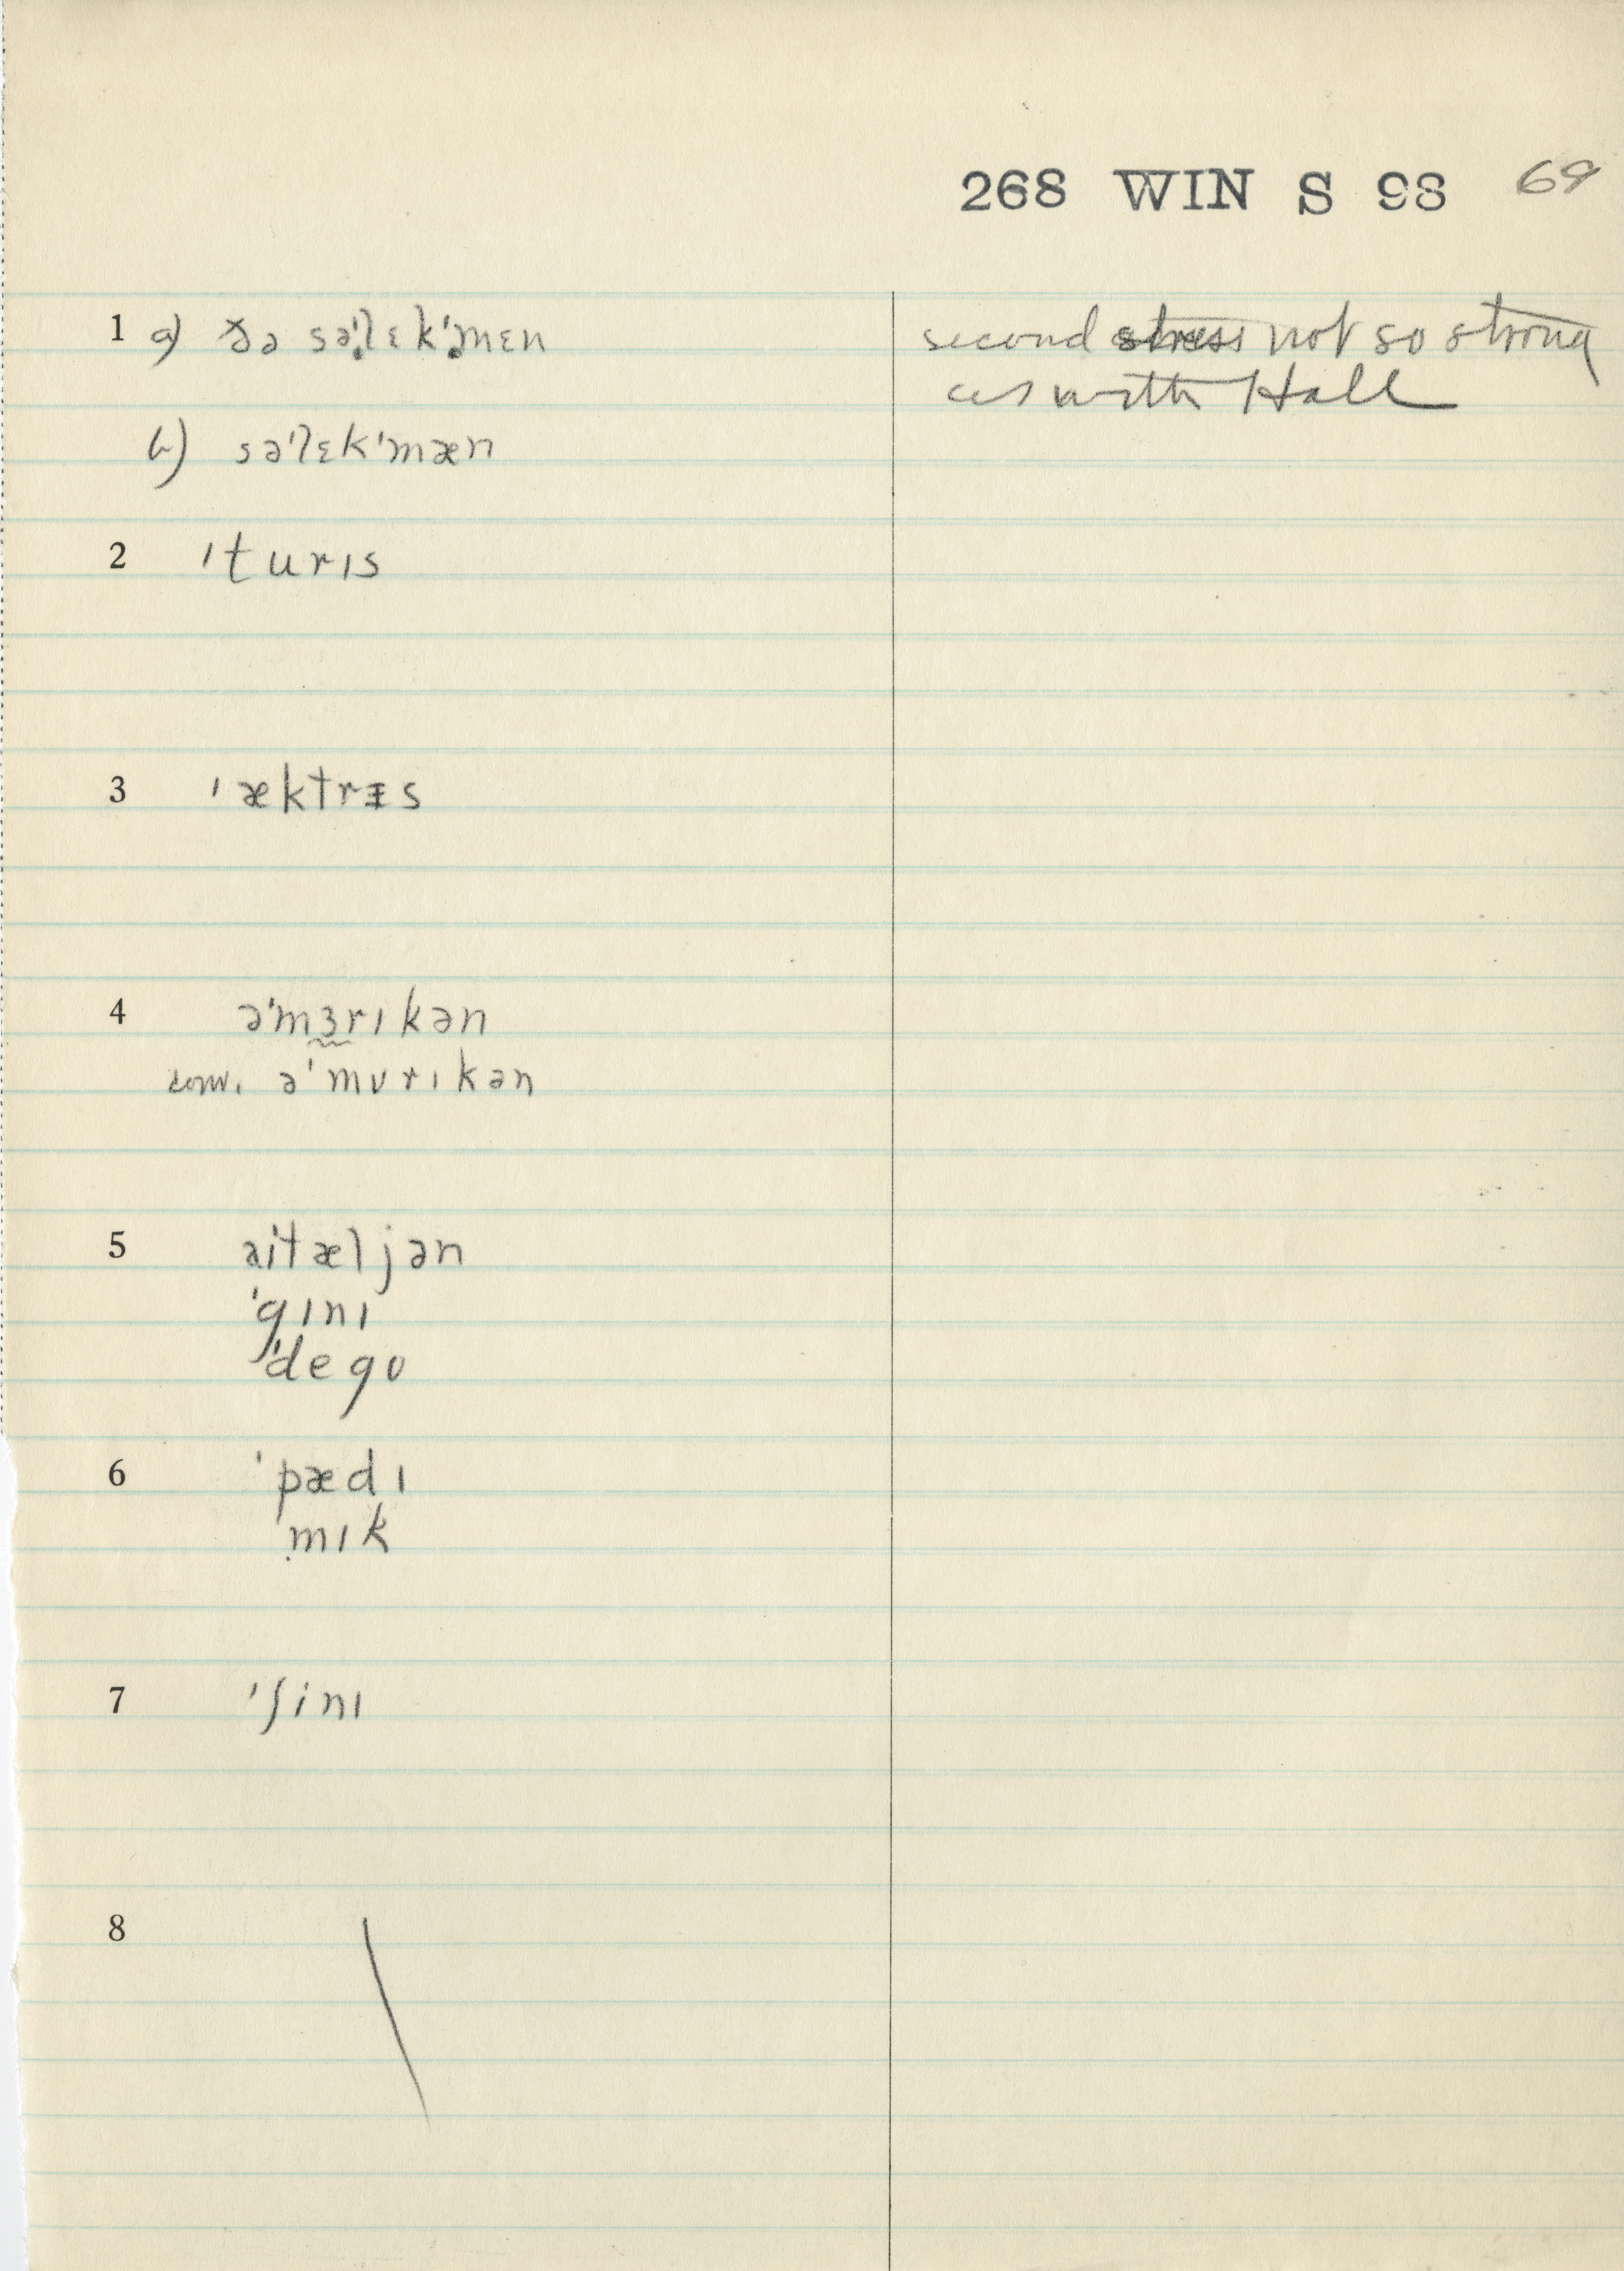 268 WIN S 98 69
1 a) ðə sə'lɛk'mɛn second stress not so strong
as with Hall
b) sə'lɛk'mæn
2 'turɪs
3 'æktrɪs
4 ə'mɜrɪkən
conv. ə'mʊrɪkən
5 aɪ'tæljən
'gɪnɪ
'dego
6 'pædɪ
mɪk
7 'ʃinɪ
8